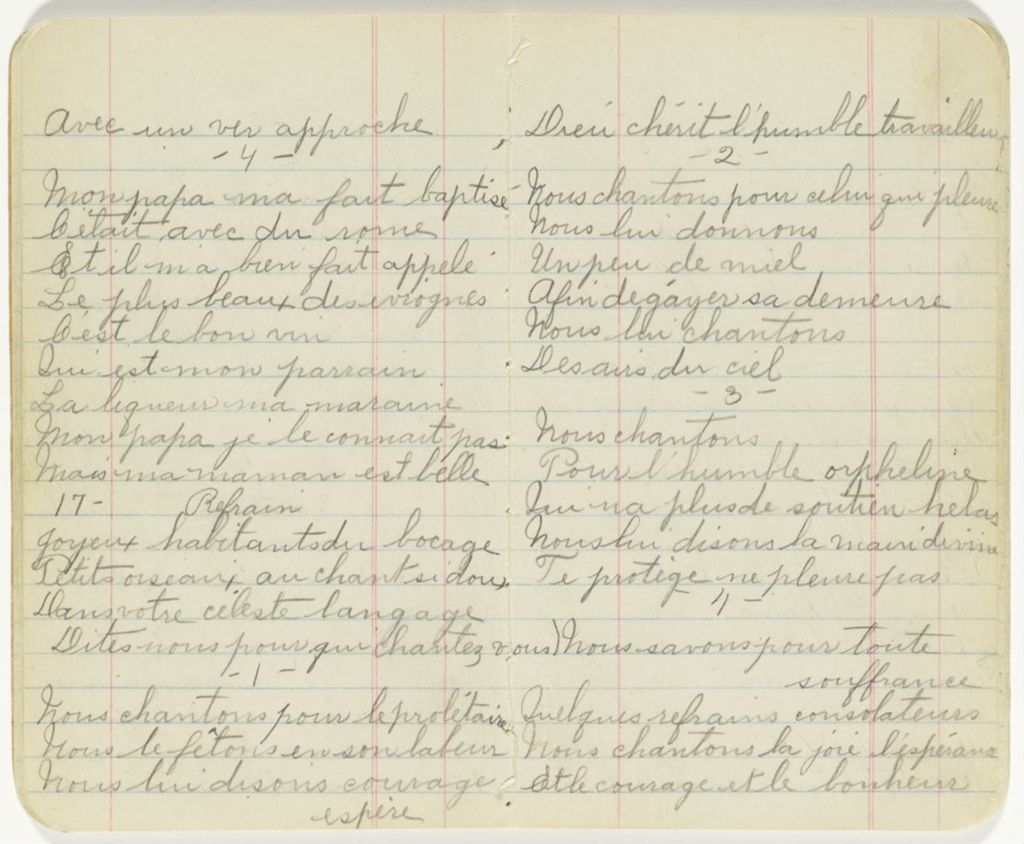 Avec un ver approche
- 4 -
Mon papa ma fait baptisé
C'était avec du rome
Et il m'a bien fait appelé
Le plus beau des ivrognes
C'est le bon vin
Qui est mon parrain
La liqueur ma maraine
Mon papa je le connait pas
Mais ma maman est belle
17- Refrain
Joyeux habitants du bocage
Petits oiseaux au chant si doux
Dans votre céleste langage
Dites nous pour qui chantez vous
- 1 -
Nous chantons pour le prolétaire
Nous le fêtons en son labeur
Nous lui disons courage
espère
Dieu chérit l'humble travailleur
- 2 -
Nous chantons pour celui qui pleure
Nous lui donnons
Un peu de miel
Afin degáyer sa demeure
Nous lui chantons
Des airs du ciel
- 3 -
Nous chantons
Pour l'humble orpheline
Qui na plus de soutien helas
Nous lui disons la main divine
Te protège ne pleure pas
- 4 -
Nous savons pour toute
souffrance
Quelques refrains consolateurs
Nous chantons la joie l'éspérance
Et le courage et le bonheur